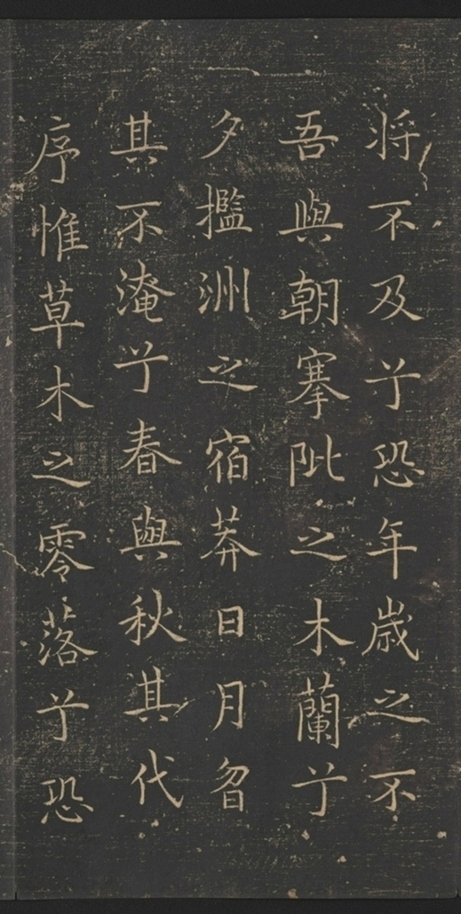 将不及兮恐年歳之不
吾與朝搴阰之木蘭兮
夕擥洲之宿莽日月曶
其不淹兮春與秋其代
序惟草木之零落兮恐